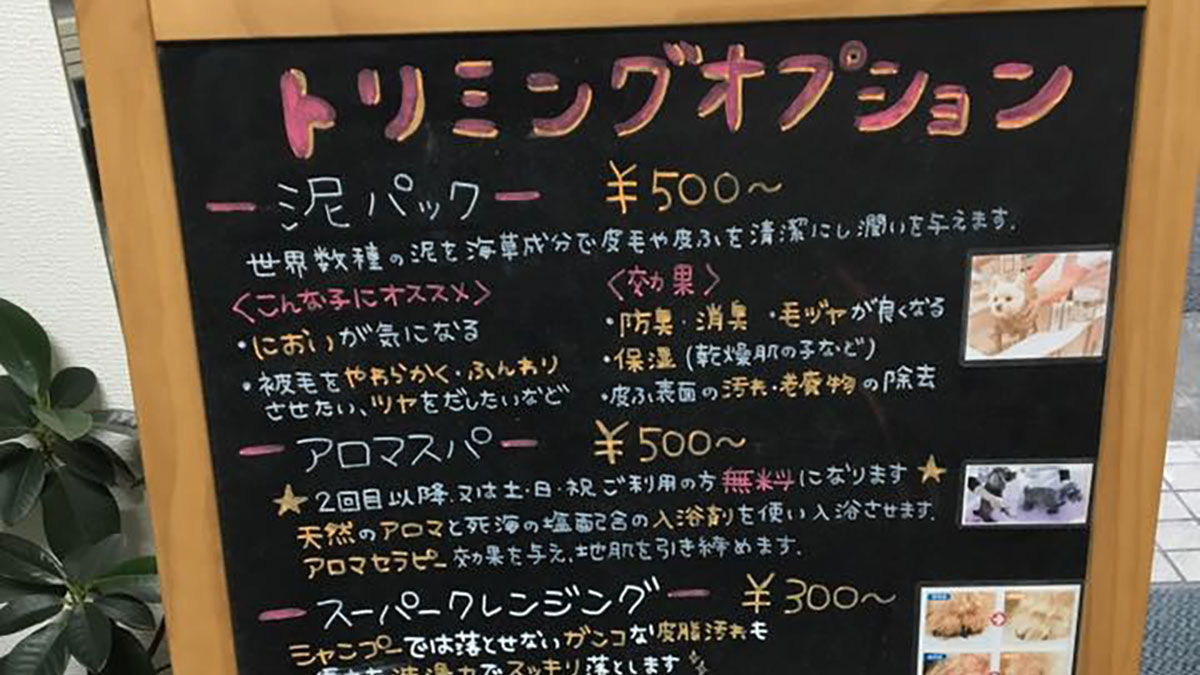 トリミングオプション
ー泥パックー ¥500～
世界数種の泥を海草成分で皮毛や皮ふを清潔にし潤いを与えます.
〈こんな子にオススメ〉
・においが気になる
・被毛をやわらかく・ふんわり
させたい、ツヤをだしたいなど
〈効果〉
・防臭・消臭 ・毛ヅヤが良くなる
・保湿(乾燥肌の子など)
・皮ふ表面の汚れ・老廃物の除去
ーアロマスパー ¥500～
★2回目以降、又は土・日・祝ご利用の方無料になります★
天然のアロマと死海の塩配合の入浴剤を使い入浴させます.
アロマセラピー効果を与え、地肌を引き締めます.
ースーパークレンジングー ¥300～
シャンプーでは落とせないガンコな皮脂汚れも
洗浄力でスッキリ落とします